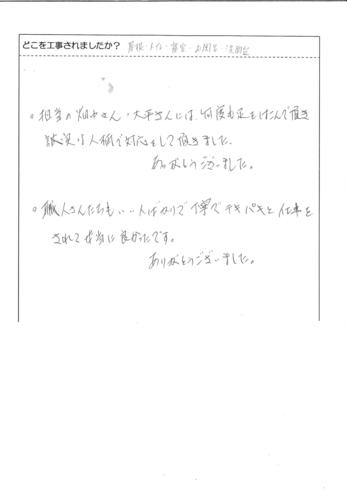 どこを工事されましたか? 屋根・トイレ・寝室・お風呂・洗面台
。担当の畑中さん・大平さんには、何度も足をはこんで頂き
誠実な人柄で対応をして頂きました。
ありがとうございました。
。職人さんたちもいい人ばかりで丁寧でテキパキと仕事を
されて本当に良かったです。
ありがとうございました。